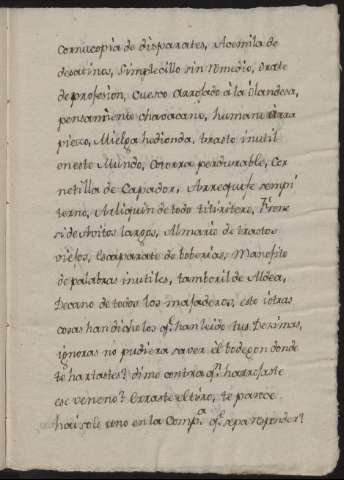 cornucopia de disparates, Acemila de
desatinos, Simplecillo sin remedio, Orate
de profesion, Cuero arrolado à la Olandesa,
pensamiento chavacano, humano
piezo, Mielga hedionda, trasto inutil
en este Mundo, Cotorra perdurable, Cor
netilla de Capador, Arrequife sempi
terno, Arliquin de todo titiritero, Frene
si de Avitos largos, Almario de trastos
viejos, escaparate de boberias, Manojito
de palabras inutiles, tamboril de Aldea,
Decano de todos los majaderos, esto i otras
cosas han dicho los q.e han leido tus Dezimas,
ignoras no pudiera saver el bodegon donde
te hartastes? dime contra q.n harrojaste
ese veneno? Erraste el tiro, te parece
hai solo uno en la Comp.a q.e sepa responder?